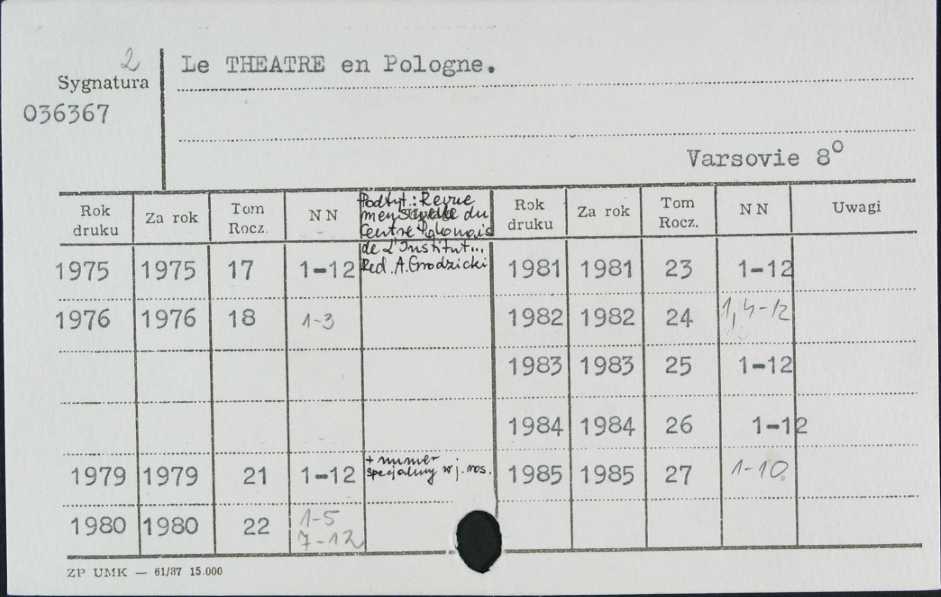 2
Le THEATRE en Pologne.
Sygnatura
036367
Varsovie 8°
Rok druku Za rok Tom Rocz. NN Podtyt.: Revue Rok druku Za rok Tom Rocz. NN Uwagi
mensuelle du
Centre Polonais
de L'Institut...
Red. A. Grodzicki
1975 1975 17 1-12 1981 1981 23 1-12
1976 1976 18 1-3 1982 1982 24 1,4-12
1983 1983 25 1-12
1984 1984 26 1-12
1979 1979 21 1-12 + numer 1985 1985 27 1-10.
specjalny w j. ros.
1980 1980 22 1-5
7-12
ZP UMK — 61/87 15.000